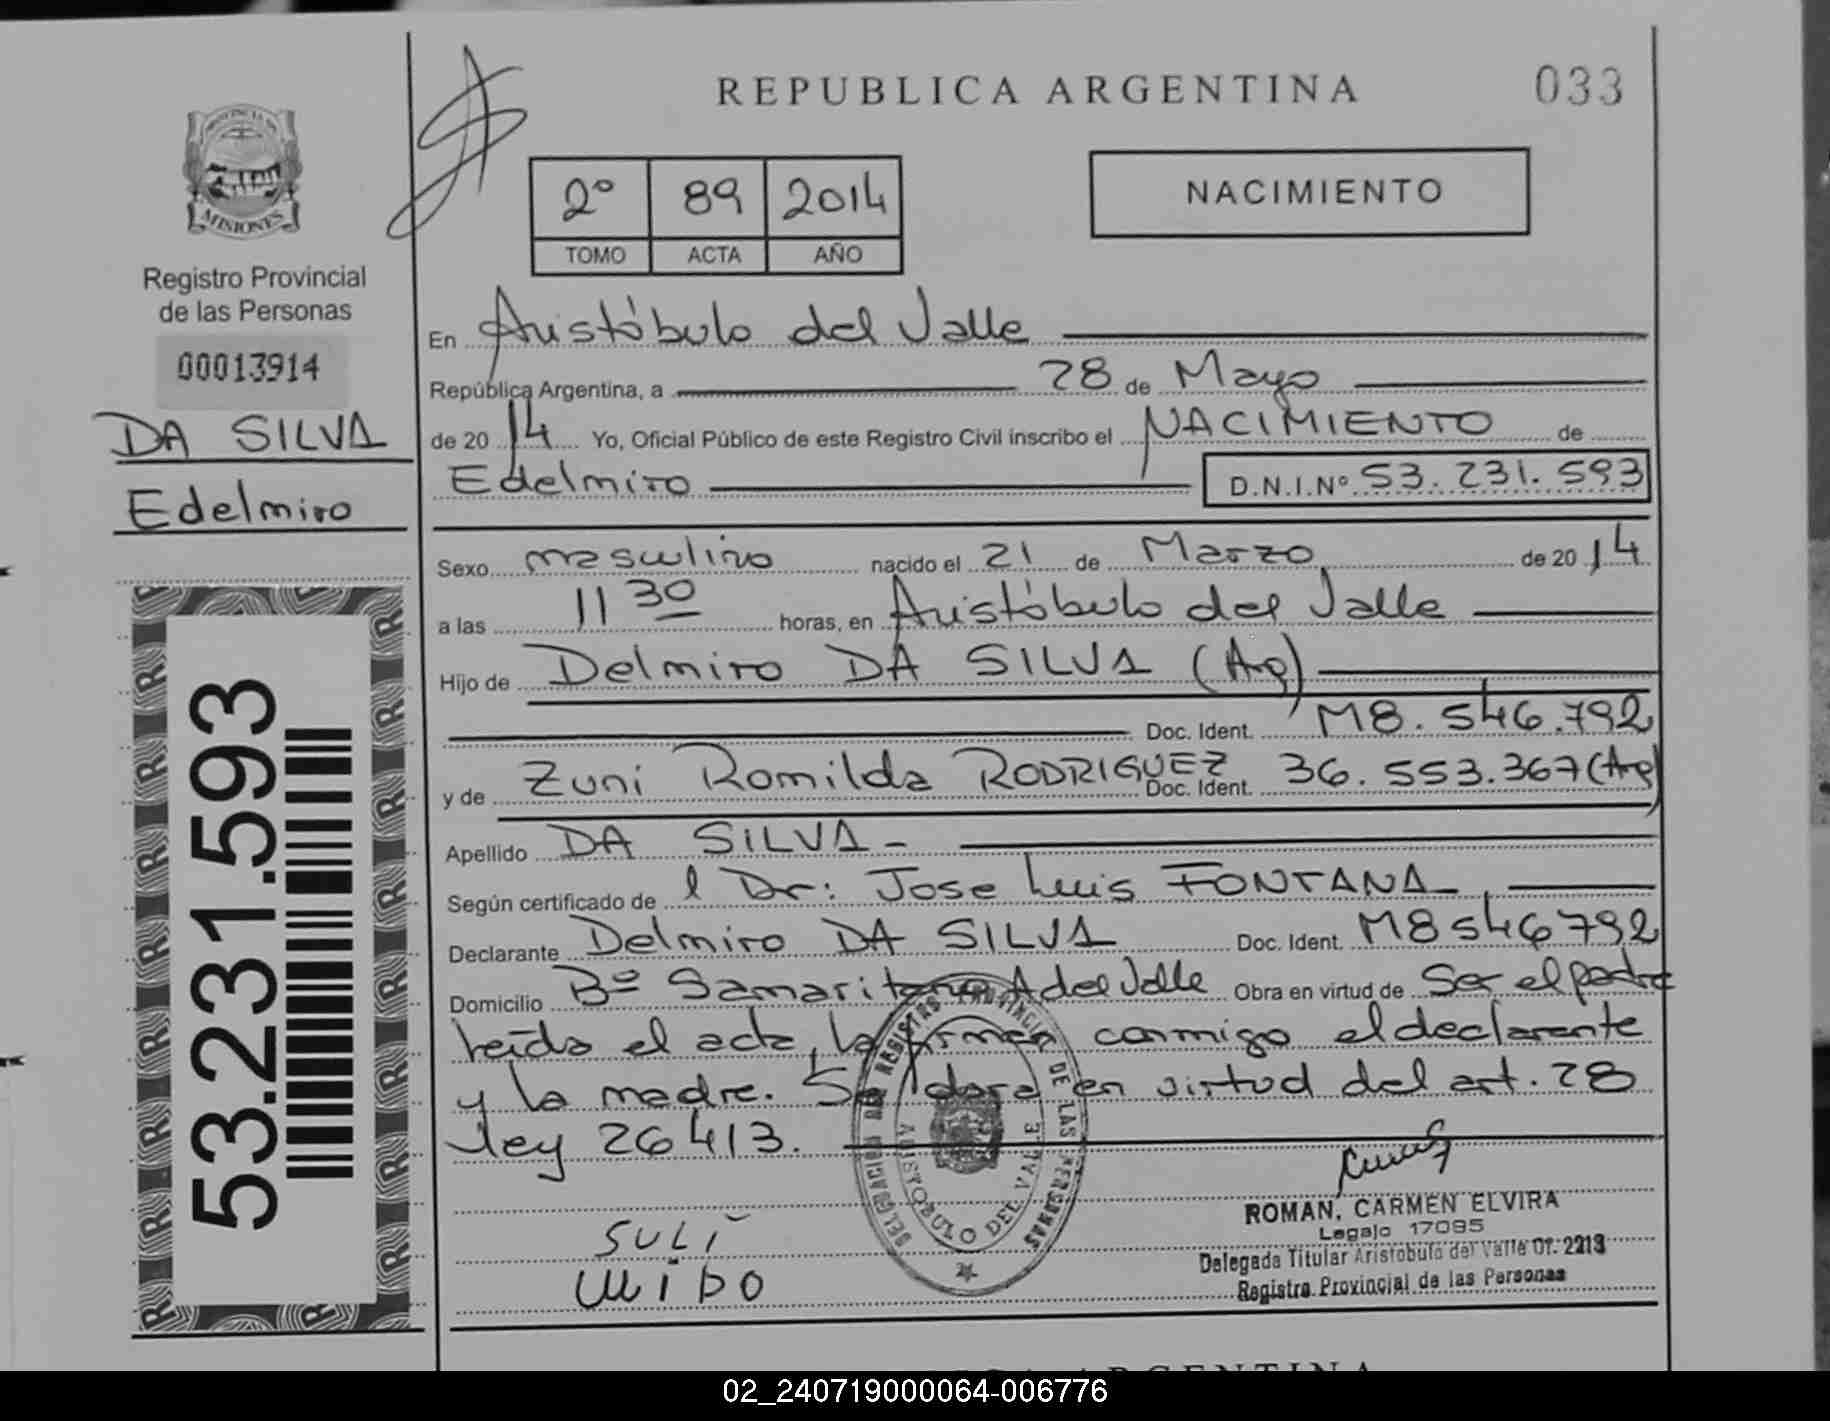 REPUBLICA ARGENTINA
033
PROVINCIA DE
MISIONES
Registro Provincial
de las Personas
00013914
DA SILVA
Edelmiro
53.231.593
2º 89 2014
TOMO ACTA AÑO
NACIMIENTO
En Aristóbulo del Valle
República Argentina, a 28 de Mayo
de 20 14 Yo, Oficial Público de este Registro Civil inscribo el NACIMIENTO de
Edelmiro D.N.I.Nº 53.231.593
Sexo masculino nacido el 21 de Marzo de 20 14
a las 11 30 horas, en Aristóbulo del Valle
Hijo de Delmiro DA SILVA (Arg)
Doc. Ident. M8.546.792
y de Zuni Romilda RODRIGUEZ Doc. Ident. 36.553.367 (Arg)
Apellido DA SILVA-
Según certificado de l Dr: Jose Luis FONTANA
Declarante Delmiro DA SILVA Doc. Ident. M8546792
Domicilio Bº Samaritano A del Valle Obra en virtud de Ser el padre
Leída el acta, la firman conmigo el declarante
y la madre. Se labra en virtud del art. 28
ley 26413.
DELEGACION DEL REGISTRO PROVINCIAL DE LAS PERSONAS
ARISTOBULO DEL VALLE
SULI
ROMAN, CARMEN ELVIRA
Legajo 17095
Delegada Titular Aristobulo del Valle Of. 2213
Registro Provincial de las Personas
REPUBLICA ARGENTINA
02_240719000064-006776